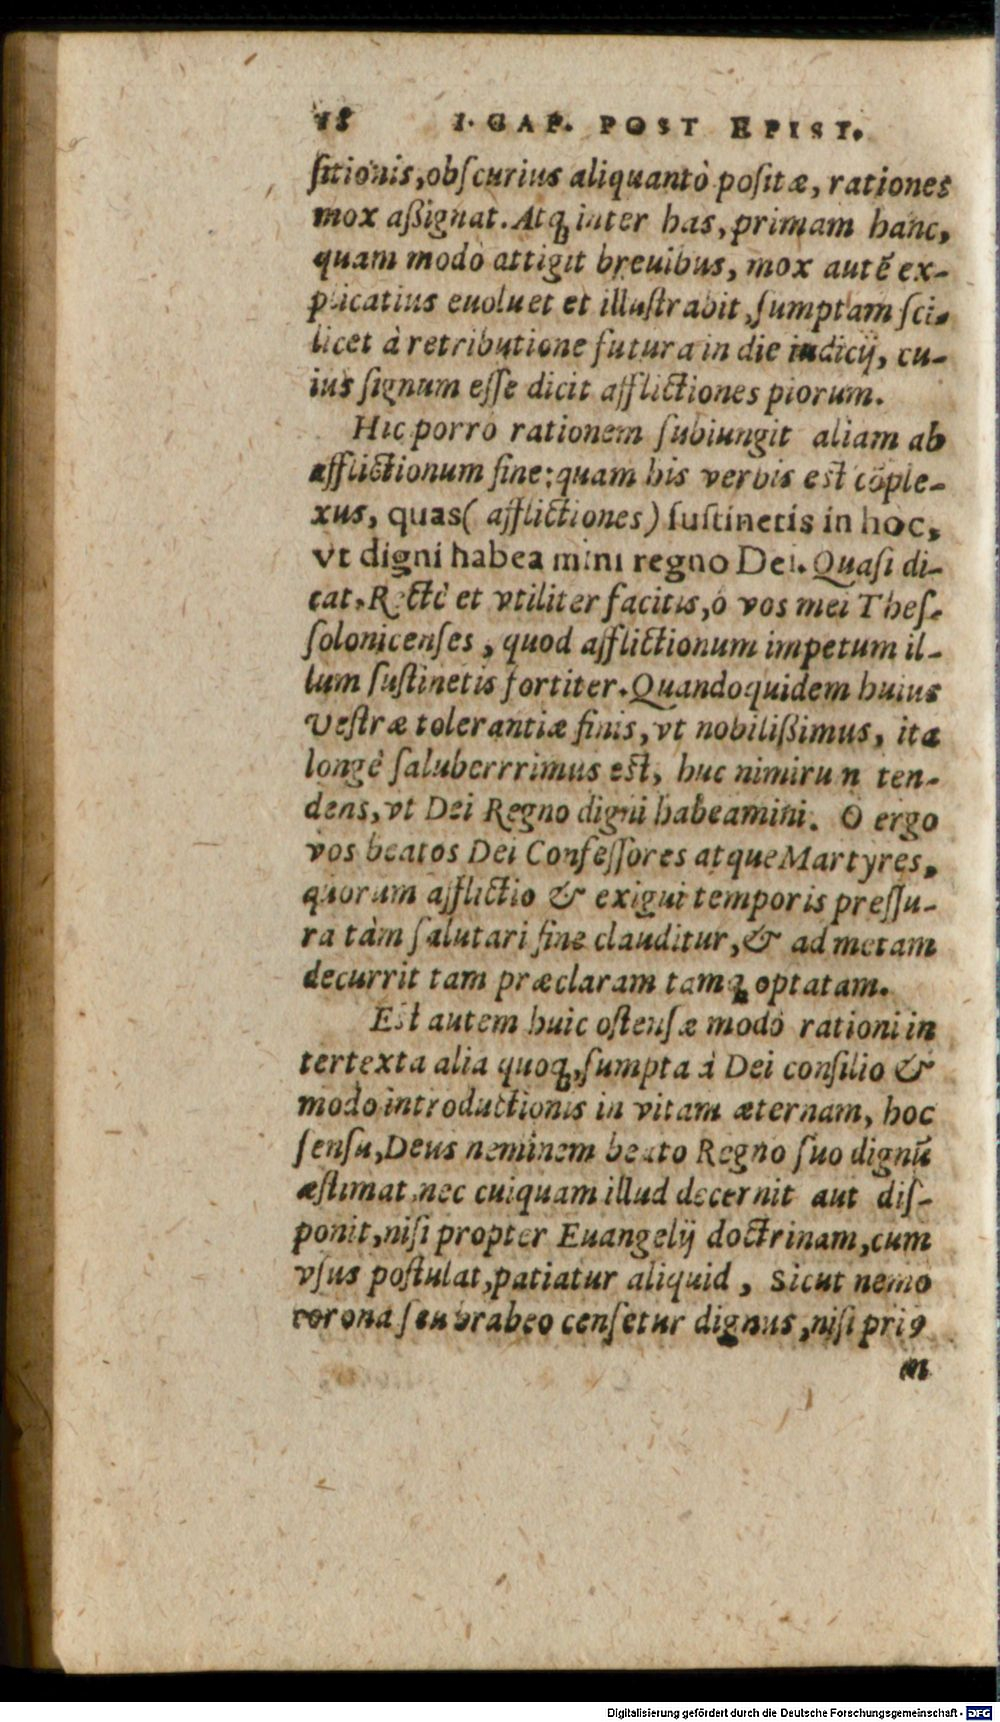 18 I. CAP. POST EPIST.
ſitionis, obſcurius aliquantò poſitæ, rationes
mox aßignat. Atq; inter has, primam hanc,
quam modò attigit breuibus, mox autē ex-
plicatius euoluet et illuſtrabit, ſumptam ſci-
licet à retributione futura in die iudicij, cu-
ius ſignum eſſe dicit afflictiones piorum.
Hic porrò rationem ſubiungit aliam ab
afflictionum fine: quam his verbis est cōple-
xus, quas (afflictiones) ſuſtinetis in hoc,
vt digni habeamini regno Dei. Quaſi di-
cat, Rectè et vtiliter facitis, ò vos mei Theſ-
ſolonicenſes, quod afflictionum impetum il-
lum ſuſtinetis fortiter. Quandoquidem huius
Veſtræ tolerantiæ finis, vt nobilißimus, ita
longè ſaluberrrimus est, huc nimirum ten-
dens, vt Dei Regno digni habeamini. O ergo
vos beatos Dei Confeſſores atque Martyres,
quorum afflictio & exigui temporis preſſu-
ra tàm ſalutari fine clauditur, & ad metam
decurrit tam præclaram tamq; optatam.
Est autem huic oſtenſæ modò rationi in
tertexta alia quoq;, ſumpta à Dei conſilio &
modo introductionis in vitam æternam, hoc
ſenſu, Deus neminem beato Regno ſuo dignū
æſtimat, nec cuiquam illud decernit aut diſ-
ponit, niſi propter Euangelij doctrinam, cum
vſus poſtulat, patiatur aliquid, Sicut nemo
corona ſeu brabeo cenſetur dignus, niſi priꝰ
in
Digitalisierung gefördert durch die Deutsche Forschungsgemeinschaft - DFG